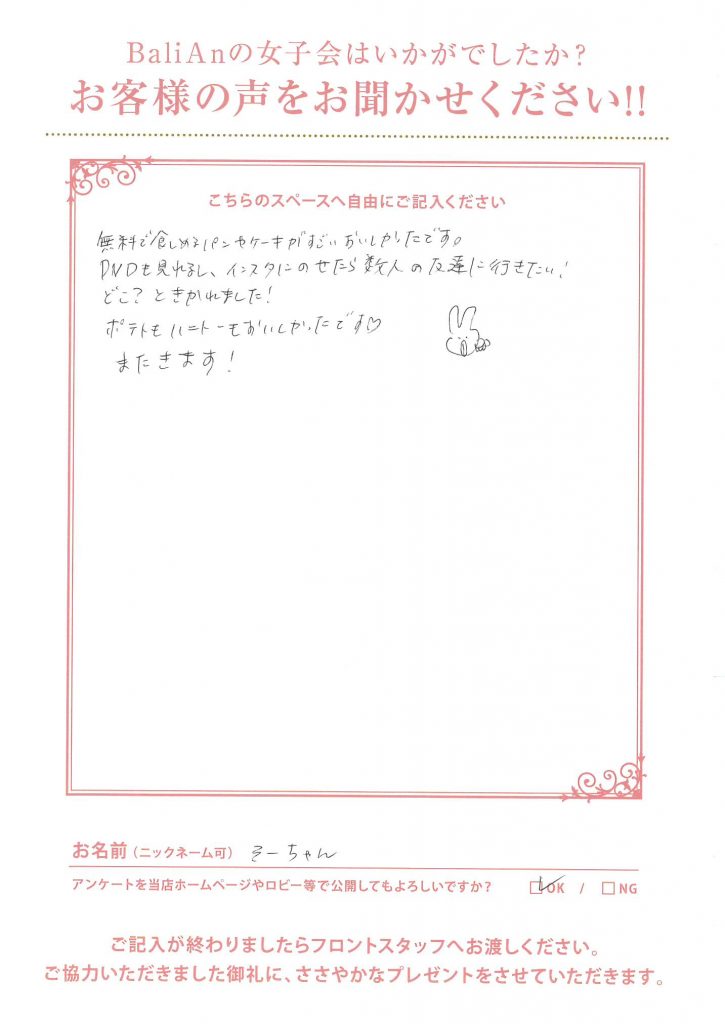 BaliAnの女子会はいかがでしたか?
お客様の声をお聞かせください!!
こちらのスペースへ自由にご記入ください
無料で食しめるパンケーキがすごいおいしかったです。
DVDも見れるし、インスタにのせたら数人の友達に行きたい!
どこ?ときかれました!
ポテトもハニトーもおいしかったです♡
またきます!
お名前(ニックネーム可) そーちゃん
アンケートを当店ホームページやロビー等で公開してもよろしいですか? OK / NG
ご記入が終わりましたらフロントスタッフへお渡しください。
ご協力いただきました御礼に、ささやかなプレゼントをさせていただきます。